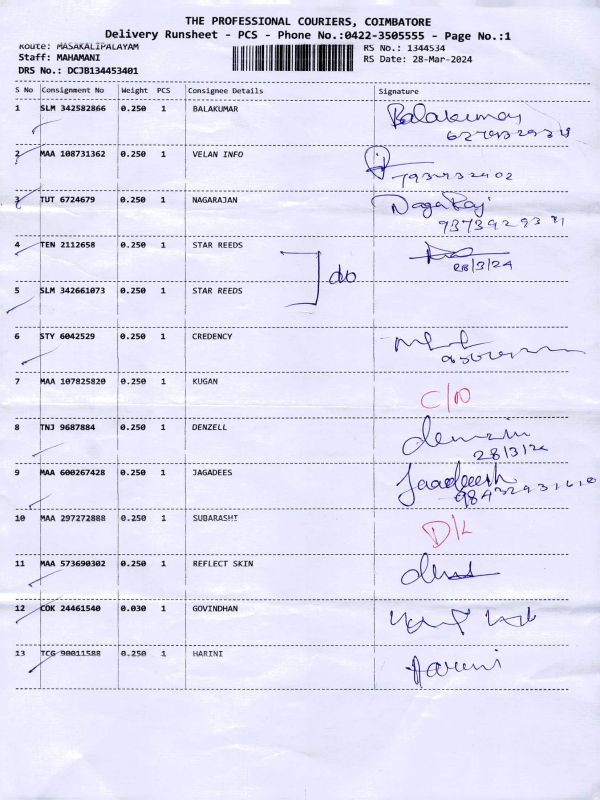 THE PROFESSIONAL COURIERS, COIMBATORE
Delivery Runsheet - PCS - Phone No.:0422-3505555 - Page No.:1
Route: MASAKALIPALAYAM
RS No.: 1344534
Staff: MAHAMANI
RS Date: 28-Mar-2024
DRS No.: DCJB134453401
S No Consignment No Weight PCS Consignee Details Signature
1 SLM 342582866 0.250 1 BALAKUMAR Balakumar
2 MAA 108731362 0.250 1 VELAN INFO
3 TUT 6724679 0.250 1 NAGARAJAN Nagaraj
4 TEN 2112658 0.250 1 STAR REEDS
28/3/24
do
5 SLM 342661073 0.250 1 STAR REEDS
6 STY 6042529 0.250 1 CREDENCY
7 MAA 107825820 0.250 1 KUGAN
8 TNJ 9687884 0.250 1 DENZELL
28/3/24
9 MAA 600267428 0.250 1 JAGADEES
10 MAA 297272888 0.250 1 SUBARASHT
D/L
11 MAA 573690302 0.250 1 REFLECT SKIN
12 COK 24461540 0.030 1 GOVINDHAN
13 TCG 90011588 0.250 1 HARINI Harini